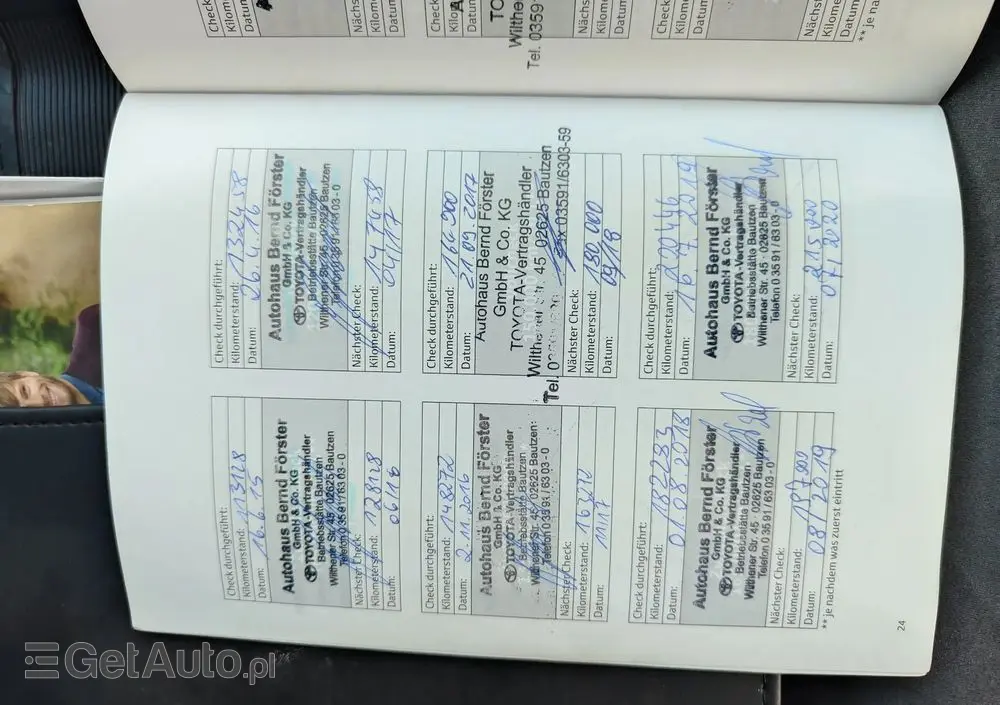 Check durchgeführt:
Kilometerstand: 113128
Datum: 16.6.15
Autohaus Bernd Förster
GmbH & Co. KG
TOYOTA-Vertragshändler
Betriebsstätte Bautzen
Wilthener Str. 45 · 02625 Bautzen
Telefon 0 35 91 / 63 03 - 0
Nächster Check:
Kilometerstand: 128128
Datum: 06/16
Check durchgeführt:
Kilometerstand: 132458
Datum: 26.4.16
Autohaus Bernd Förster
GmbH & Co. KG
TOYOTA-Vertragshändler
Betriebsstätte Bautzen
Wilthener Str. 45 · 02625 Bautzen
Telefon
Nächster Check:
Kilometerstand: 147458
Datum: 04/17
Check durchgeführt:
Kilometerstand:
Datum: 2.11.2016
Autohaus Bernd Förster
GmbH & Co. KG
TOYOTA-Vertragshändler
Betriebsstätte Bautzen
Wilthener Str. 45 · 02625 Bautzen
Telefon 0 35 91 / 63 03 - 0
Nächster Check:
Kilometerstand:
Datum: 11/17
Check durchgeführt:
Kilometerstand:
Datum: 21.09.2017
Autohaus Bernd Förster
GmbH & Co. KG
TOYOTA-Vertragshändler
Wilthener Str. 45 · 02625 Bautzen
Tel. 03591/6303-59
Nächster Check:
Kilometerstand: 180 000
Datum: 09/18
Check durchgeführt:
Kilometerstand: 182233
Datum: 01 08 2018
Autohaus Bernd Förster
GmbH & Co. KG
TOYOTA-Vertragshändler
Betriebsstätte Bautzen
Wilthener Str. 45 · 02625 Bautzen
Telefon 0 35 91 / 63 03 - 0
Nächster Check:
Kilometerstand: 197 500
Datum: 08/2019
Check durchgeführt:
Kilometerstand:
Datum: 16 7 2019
Autohaus Bernd Förster
GmbH & Co. KG
TOYOTA-Vertragshändler
Betriebsstätte Bautzen
Wilthener Str. 45 · 02625 Bautzen
Telefon 0 35 91 / 63 03 - 0
Nächster Check:
Kilometerstand: 215 000
Datum: 07/2020
** je nachdem was zuerst eintritt
24
Check
Kilom
Datum:
Nächs
Kilome
Datum:
Check
Kilom
Datum:
TO
Wilthe
Tel. 03591
Nächs
Kilome
Datum:
Check
Kilom
Datum:
Nächst
Kilome
Datum
** je na
GetAuto.pl